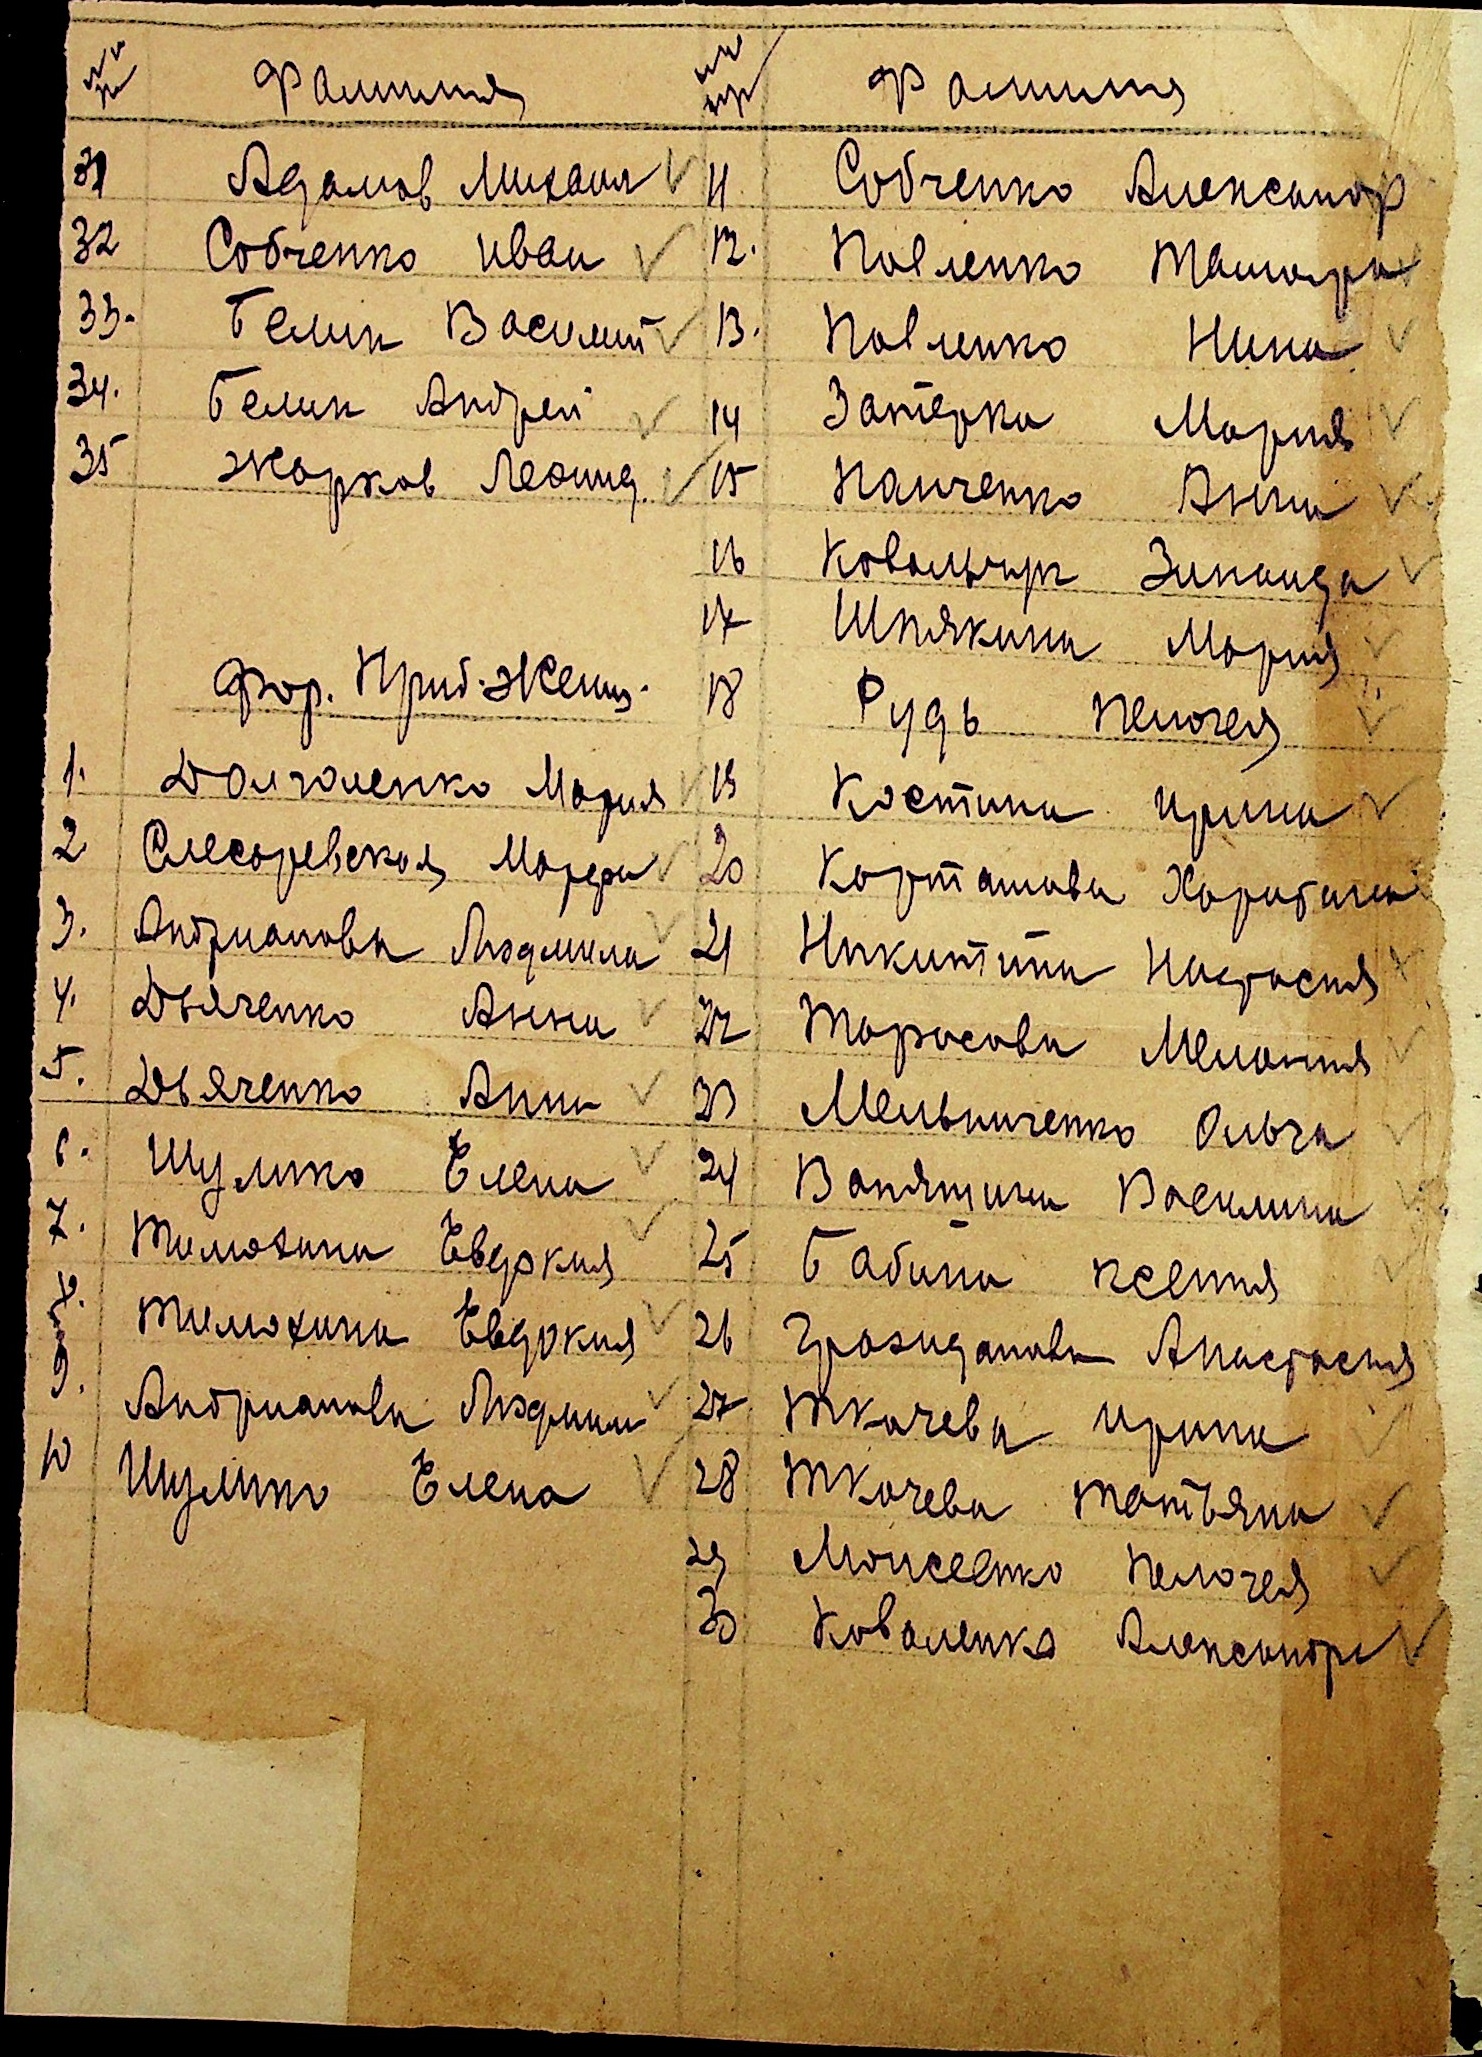 №№ пп Фамилия
31 Адамов Михаил
32 Собченко Иван
33. Белик Василий
34. Белик Андрей
35 Жарков Леонид.
Фор. Приб. Женщ.
1. Долголенко Мария
2 Слесаревская Марфа
3. Андрианова Людмила
4. Дьяченко Анна
5. Дьяченко Анна
6. Шулико Елена
7. Тимохина Евдокия
8. Тимохина Евдокия
9. Андрианова Людмила
10 Шулико Елена
№№ пп Фамилия
11 Собченко Александр
12. Павленко Тамара
13. Павленко Нина
14 Затерка Мария
15 Панченко Анна
16 Ковальчук Зинаида
17 Шпякина Мария
18 Рудь Пелогея
19 Костина Ирина
20 Карташова Харитина
21 Никитина Настасия
22 Тарасова Мелания
23 Мельниченко Ольга
24 Вапятина Василина
25 Бабина Ксения
26 Гражданова Анастасия
27 Ткачева Ирина
28 Ткачева Татьяна
29 Моисеенко Пелогея
30 Коваленко Александра